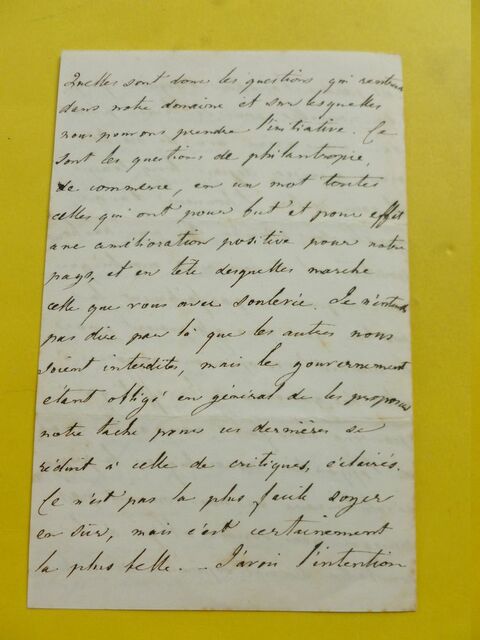 Quelles sont donc les questions qui rentrent
dans notre domaine et sur lesquelles
nous pouvons prendre l'initiative. Ce
sont les questions de philantropie,
de commerce, en un mot toutes
celles qui ont pour but et pour effet
une amélioration positive pour notre
pays, et en tête desquelles marche
celle que vous avez soulevée. Je n'entends
pas dire par là que les autres nous
soient interdites, mais le gouvernement
étant obligé en général de les proposer
notre tache pour ces dernières se
réduit à celle de critiques, éclairés.
Ce n'est pas la plus facile soyez
en sûr, mais c'est certainement
la plus belle. _ J'avais l'intention